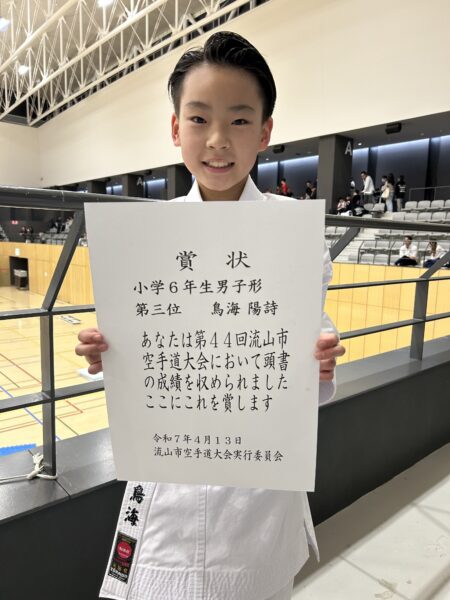 A
A
賞状
小学6年生男子形
第三位 鳥海 陽詩
あなたは第44回流山市
空手道大会において頭書
の成績を収められました
ここにこれを賞します
令和7年4月13日
流山市空手道大会実行委員会
鳥海